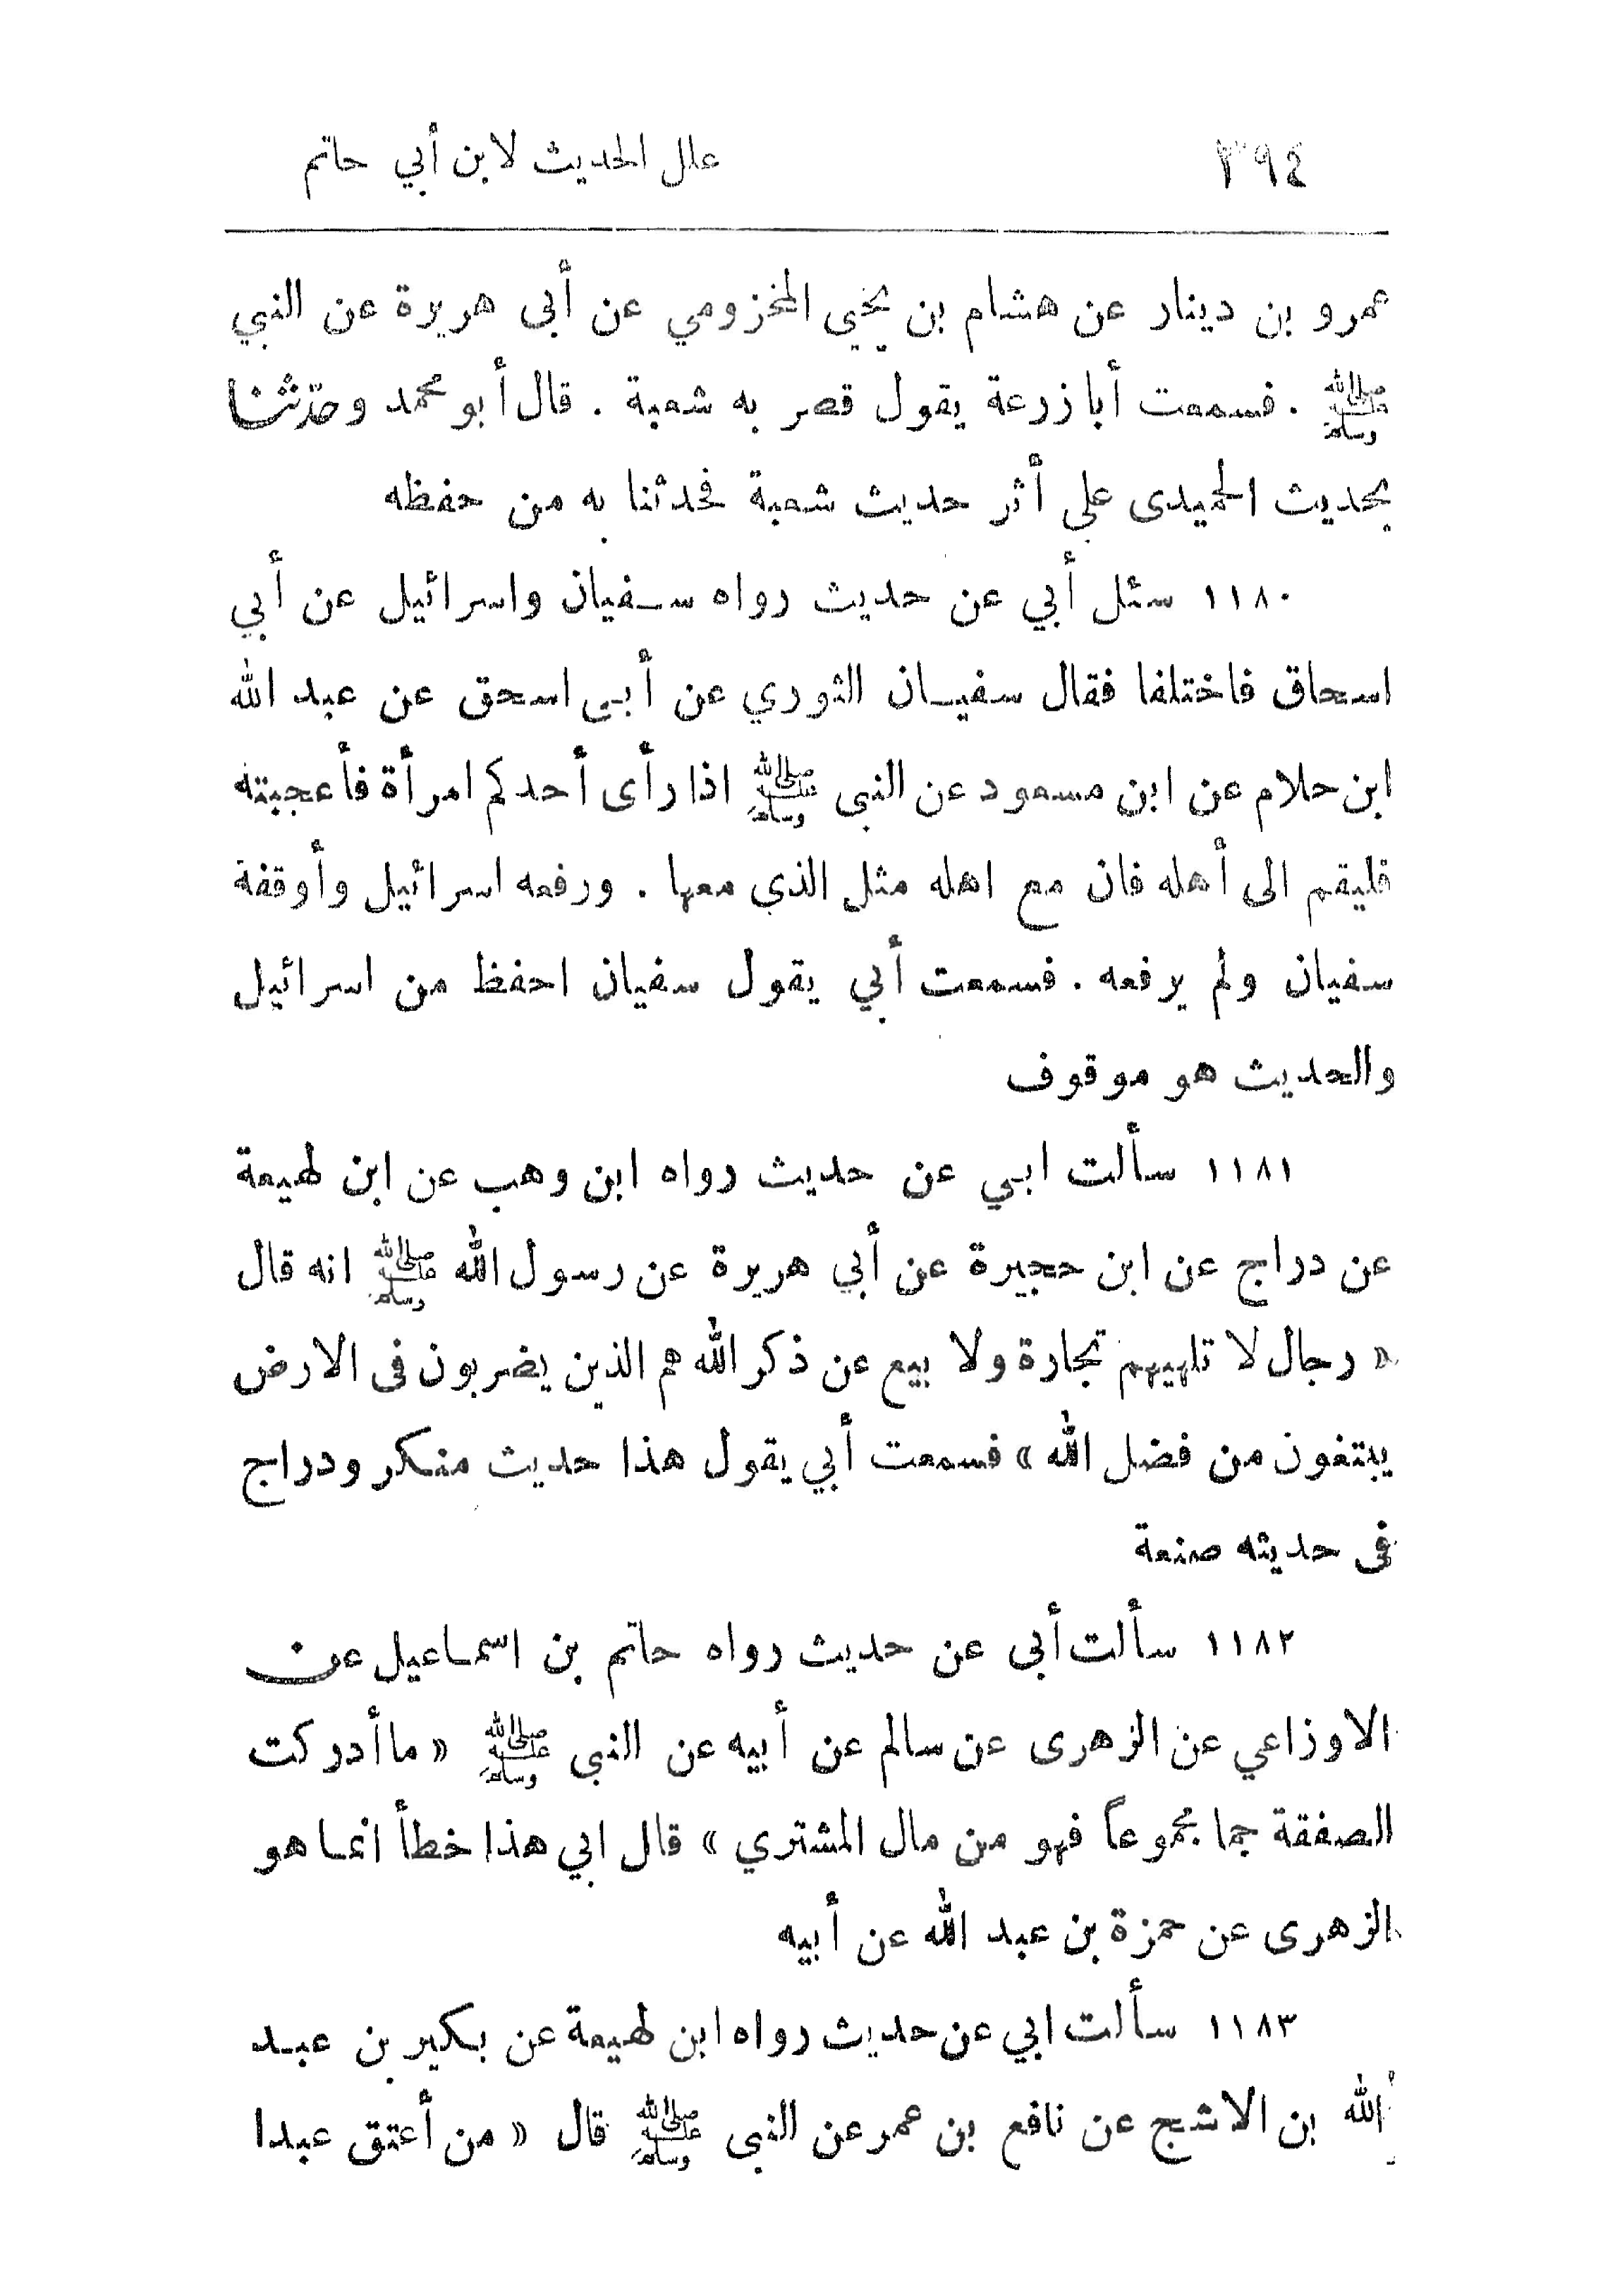 ٣٩٤ علل الحديث لابن أبي حاتم
عمرو بن دينار عن هشام بن يحيى المخزومي عن أبى هريرة عن النبي
ﷺ . فسمعت أبا زرعة يقول قصر به شعبة . قال أبو محمد وحدّثنا
بحديث الحميدى علي أثر حديث شعبة فحدثنا به من حفظه
١١٨٠ سئل أبي عن حديث رواه سفيان واسرائيل عن أبي
اسحاق فاختلفا فقال سفيان الثوري عن أبى اسحق عن عبد الله
ابن حلام عن ابن مسعود عن النبى ﷺ اذا رأى أحدكم امرأة فأعجبته
فليقم الى أهله فان مع اهله مثل الذي معها . ورفعه اسرائيل وأوقفة
سفيان ولم يرفعه . فسمعت أبي يقول سفيان احفظ من اسرائيل
والحديث هو موقوف
١١٨١ سألت ابي عن حديث رواه ابن وهب عن ابن لهيعة
عن دراج عن ابن حجيرة عن أبي هريرة عن رسول الله ﷺ انه قال
« رجال لا تلهيهم تجارة ولا بيع عن ذكر الله هم الذين يضربون فى الارض
يبتغون من فضل الله » فسمعت أبي يقول هذا حديث منكر ودراج
فى حديثه صنعة
١١٨٢ سألت أبى عن حديث رواه حاتم بن اسماعيل عن
الاوزاعي عن الزهرى عن سالم عن أبيه عن النبى ﷺ « ما أدركت
الصفقة جما مجموعاً فهو من مال المشتري » قال ابي هذا خطأ انما هو
الزهرى عن حمزة بن عبد الله عن أبيه
١١٨٣ سألت ابي عن حديث رواه ابن لهيعة عن بكير بن عبد
الله بن الاشج عن نافع بن عمر عن النبى ﷺ قال « من أعتق عبدا